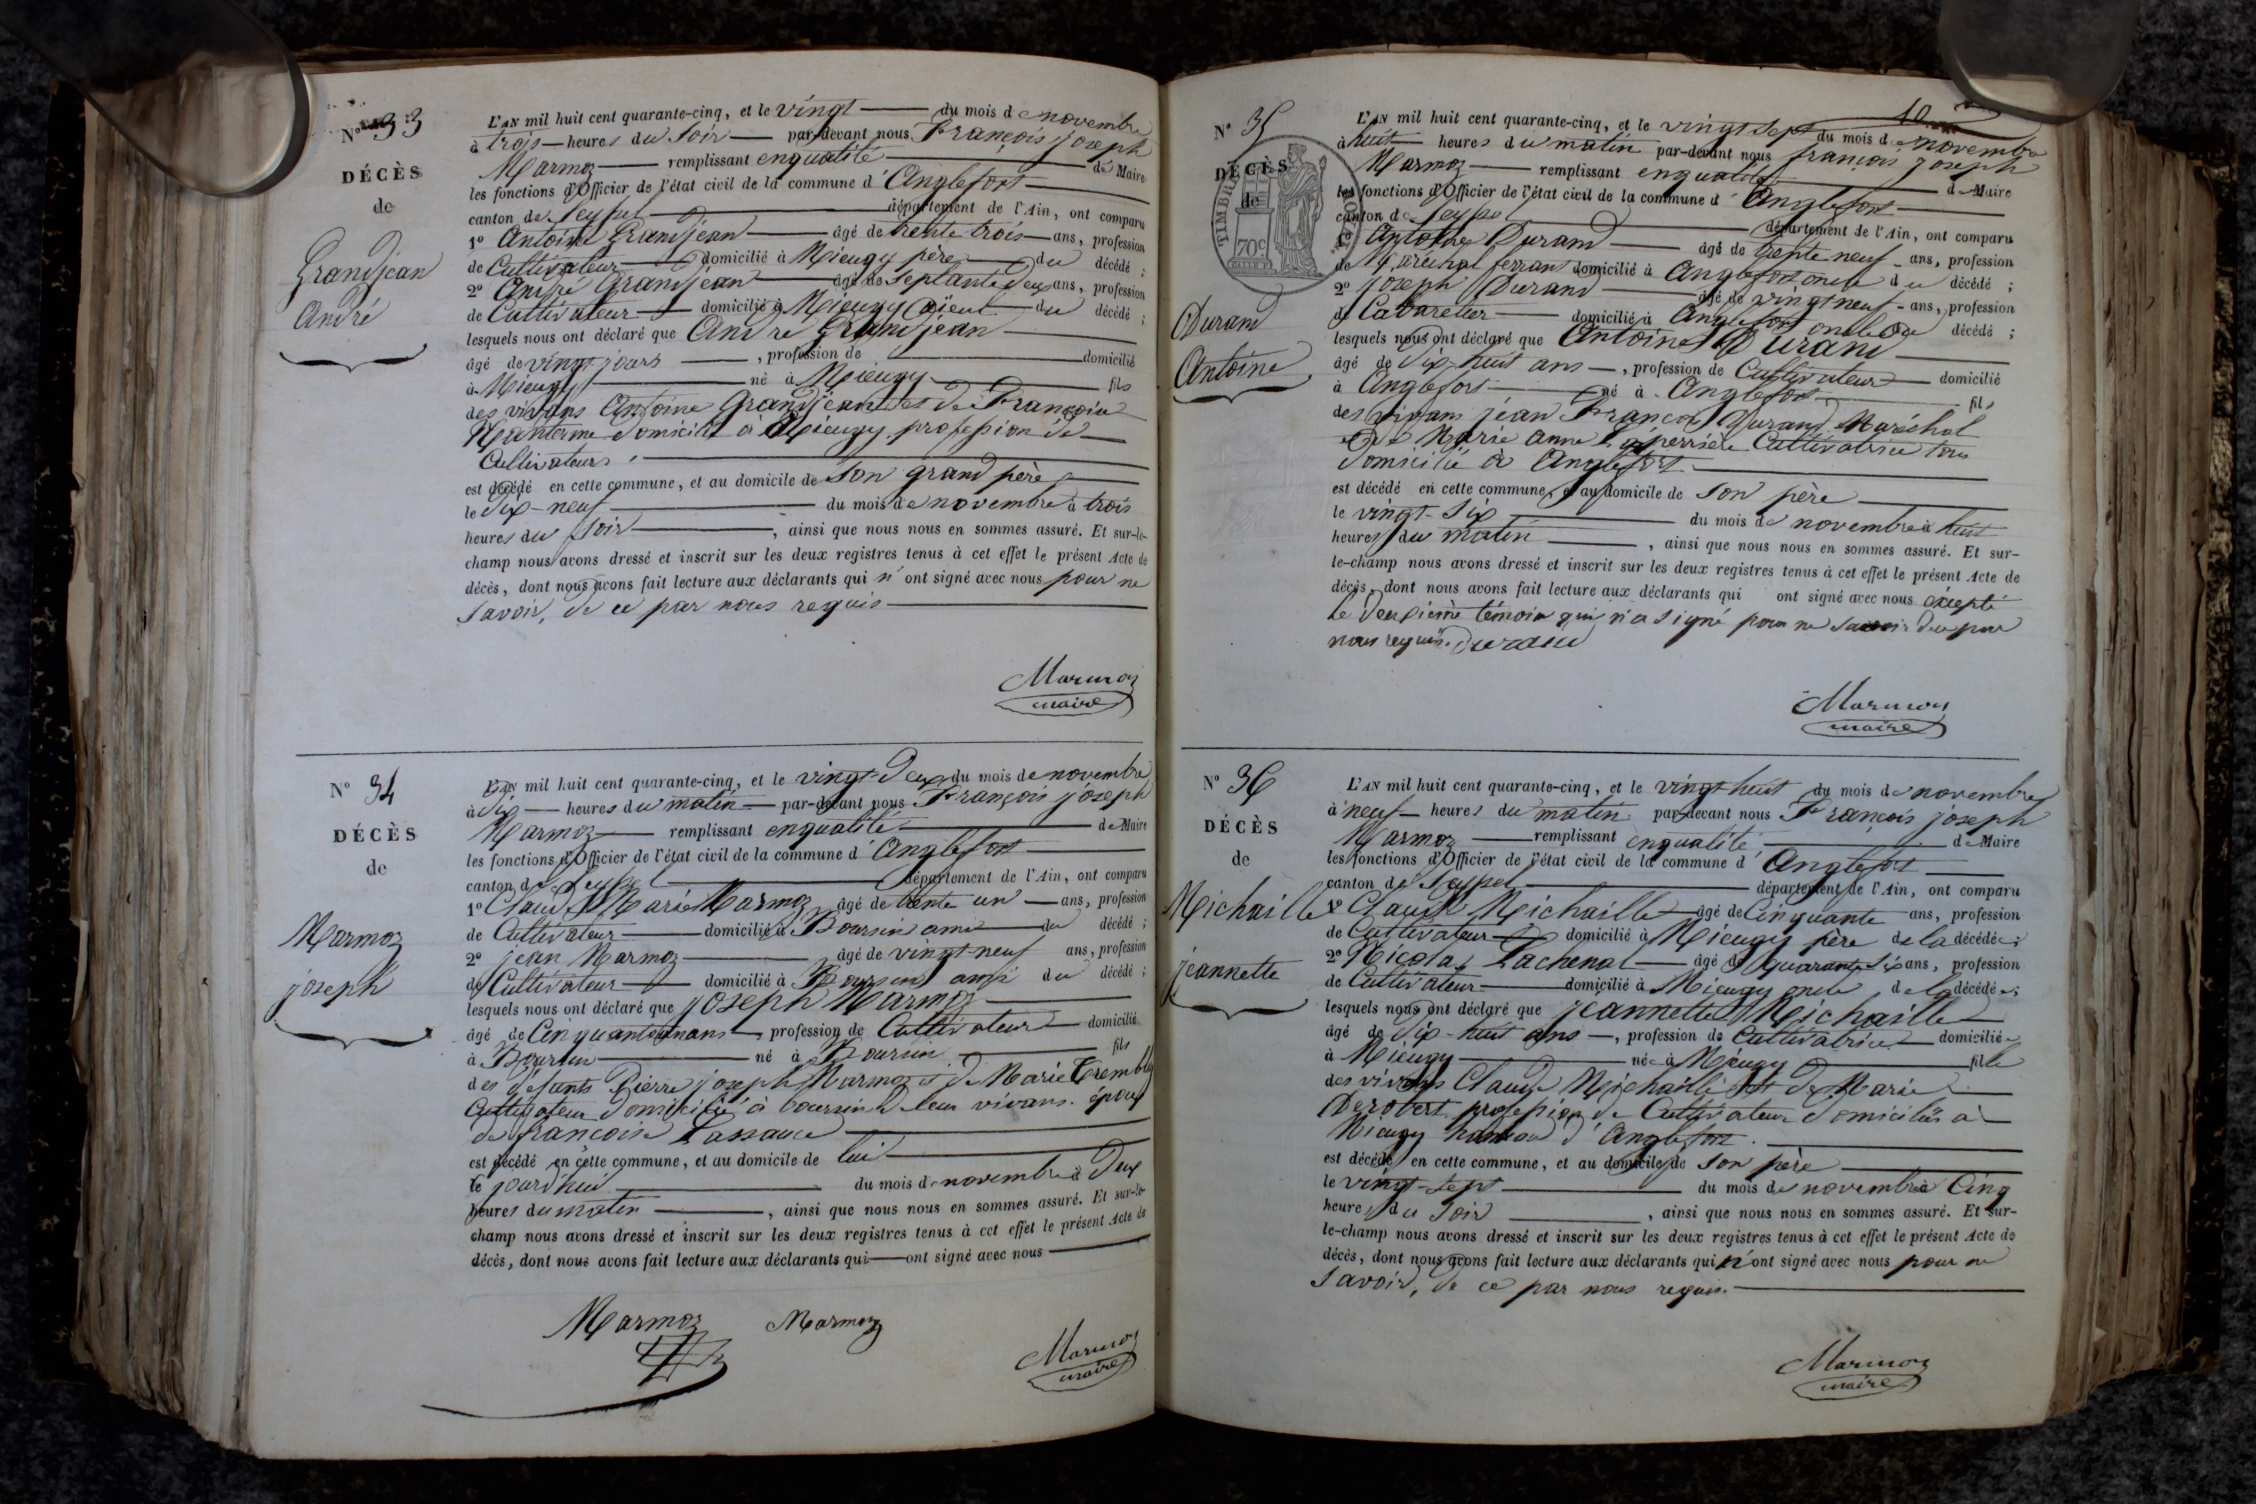 N° 33
DÉCÈS
de
Grandjean
André
L'AN mil huit cent quarante-cinq, et le vingt du mois de novembre
à trois heures du soir par-devant nous François joseph
Marmoz remplissant enqualité de Maire
les fonctions d'Officier de l'état civil de la commune d'Anglefort
canton de Seyssel département de l'Ain, ont comparu
1° Antoine Grandjean âgé de trente trois ans, profession
de Cultivateur domicilié à Mieugy père du décédé ;
2° André Grandjean âgé de septante deux ans, profession
de Cultivateur domicilié à Mieugy aïeul du décédé ;
lesquels nous ont déclaré que André Grandjean
âgé de vingt jours , profession de domicilié
à Mieugy né à Mieugy fils
des vivans Antoine Grandjean et de Françoise
domicilié à Mieugy profession de
Cultivateurs
est décédé en cette commune, et au domicile de son grand père
le dix-neuf du mois de novembre à trois
heures du soir , ainsi que nous nous en sommes assuré. Et sur-le-
champ nous avons dressé et inscrit sur les deux registres tenus à cet effet le présent Acte de
décès, dont nous avons fait lecture aux déclarants qui n'ont signé avec nous pour ne
savoir, de ce par nous requis
Marmoz
maire
N° 34
DÉCÈS
de
Marmoz
joseph
L'AN mil huit cent quarante-cinq, et le vingt-deux du mois de novembre
à dix heures du matin par-devant nous François joseph
Marmoz remplissant enqualité de Maire
les fonctions d'Officier de l'état civil de la commune d'Anglefort
canton de Seyssel département de l'Ain, ont comparu
1° Claude Marie Marmoz âgé de trente un ans, profession
de Cultivateur domicilié à Boursin ami du décédé ;
2° jean Marmoz âgé de vingt-neuf ans, profession
de Cultivateur domicilié à Boursin ami du décédé ;
lesquels nous ont déclaré que joseph Marmoz
âgé de Cinquante un ans, profession de Cultivateur domicilié
à Boursin né à Boursin fils
des défunts Pierre joseph Marmoz et de Marie Tremblay
Cultivateur domicilié à boursin de leur vivans. époux
de françoise Lassauce
est décédé en cette commune, et au domicile de lui
le jourd'hui du mois de novembre à deux
heures du matin , ainsi que nous nous en sommes assuré. Et sur-le-
champ nous avons dressé et inscrit sur les deux registres tenus à cet effet le présent Acte de
décès, dont nous avons fait lecture aux déclarants qui ont signé avec nous
Marmoz Marmoz
Marmoz
maire
10
N° 35
DÉCÈS
de
TIMBRE ROYAL
70c
Durand
Antoine
L'AN mil huit cent quarante-cinq, et le vingt sept du mois de novembre
à huit heures du matin par-devant nous françois joseph
Marmoz remplissant enqualité de Maire
les fonctions d'Officier de l'état civil de la commune d'Anglefort
canton de Seyssel département de l'Ain, ont comparu
1° Antoine Durand âgé de trente neuf ans, profession
de Maréchal ferrant domicilié à Anglefort oncle du décédé ;
2° joseph Durand âgé de vingt neuf ans, profession
de Cabaretier domicilié à Anglefort oncle du décédé ;
lesquels nous ont déclaré que Antoine Durand
âgé de dix-huit ans , profession de Cultivateur domicilié
à Anglefort né à Anglefort fils
des vivans jean François Durand Maréchal
et de Marie anne Laperrière Cultivatrice tous
domicilié à Anglefort
est décédé en cette commune, et au domicile de son père
le vingt-six du mois de novembre à huit
heures du matin , ainsi que nous nous en sommes assuré. Et sur-
le-champ nous avons dressé et inscrit sur les deux registres tenus à cet effet le présent Acte de
décès, dont nous avons fait lecture aux déclarants qui ont signé avec nous excepté
le deuxième témoin qui n'a signé pour ne savoir de ce par
nous requis. Durand
Marmoz
maire
N° 36
DÉCÈS
de
Michaille
jeannette
L'AN mil huit cent quarante-cinq, et le vingt huit du mois de novembre
à neuf heures du matin par-devant nous François joseph
Marmoz remplissant enqualité de Maire
les fonctions d'Officier de l'état civil de la commune d'Anglefort
canton de Seyssel département de l'Ain, ont comparu
1° Claude Michaille âgé de Cinquante ans, profession
de Cultivateur domicilié à Mieugy père de la décédée ;
2° Nicolas Lachenal âgé de quarante six ans, profession
de Cultivateur domicilié à Mieugy oncle de la décédée ;
lesquels nous ont déclaré que jeannette Michaille
âgé de dix-huit ans , profession de Cultivatrice domiciliée
à Mieugy née à Mieugy fille
des vivans Claude Michaille et de Marie
Derobert profession de Cultivateur domiciliés à
Mieugy hameau d'Anglefort.
est décédé en cette commune, et au domicile de son père
le vingt-sept du mois de novembre à Cinq
heures du soir , ainsi que nous nous en sommes assuré. Et sur-
le-champ nous avons dressé et inscrit sur les deux registres tenus à cet effet le présent Acte de
décès, dont nous avons fait lecture aux déclarants qui n'ont signé avec nous pour ne
savoir, de ce par nous requis.
Marmoz
maire